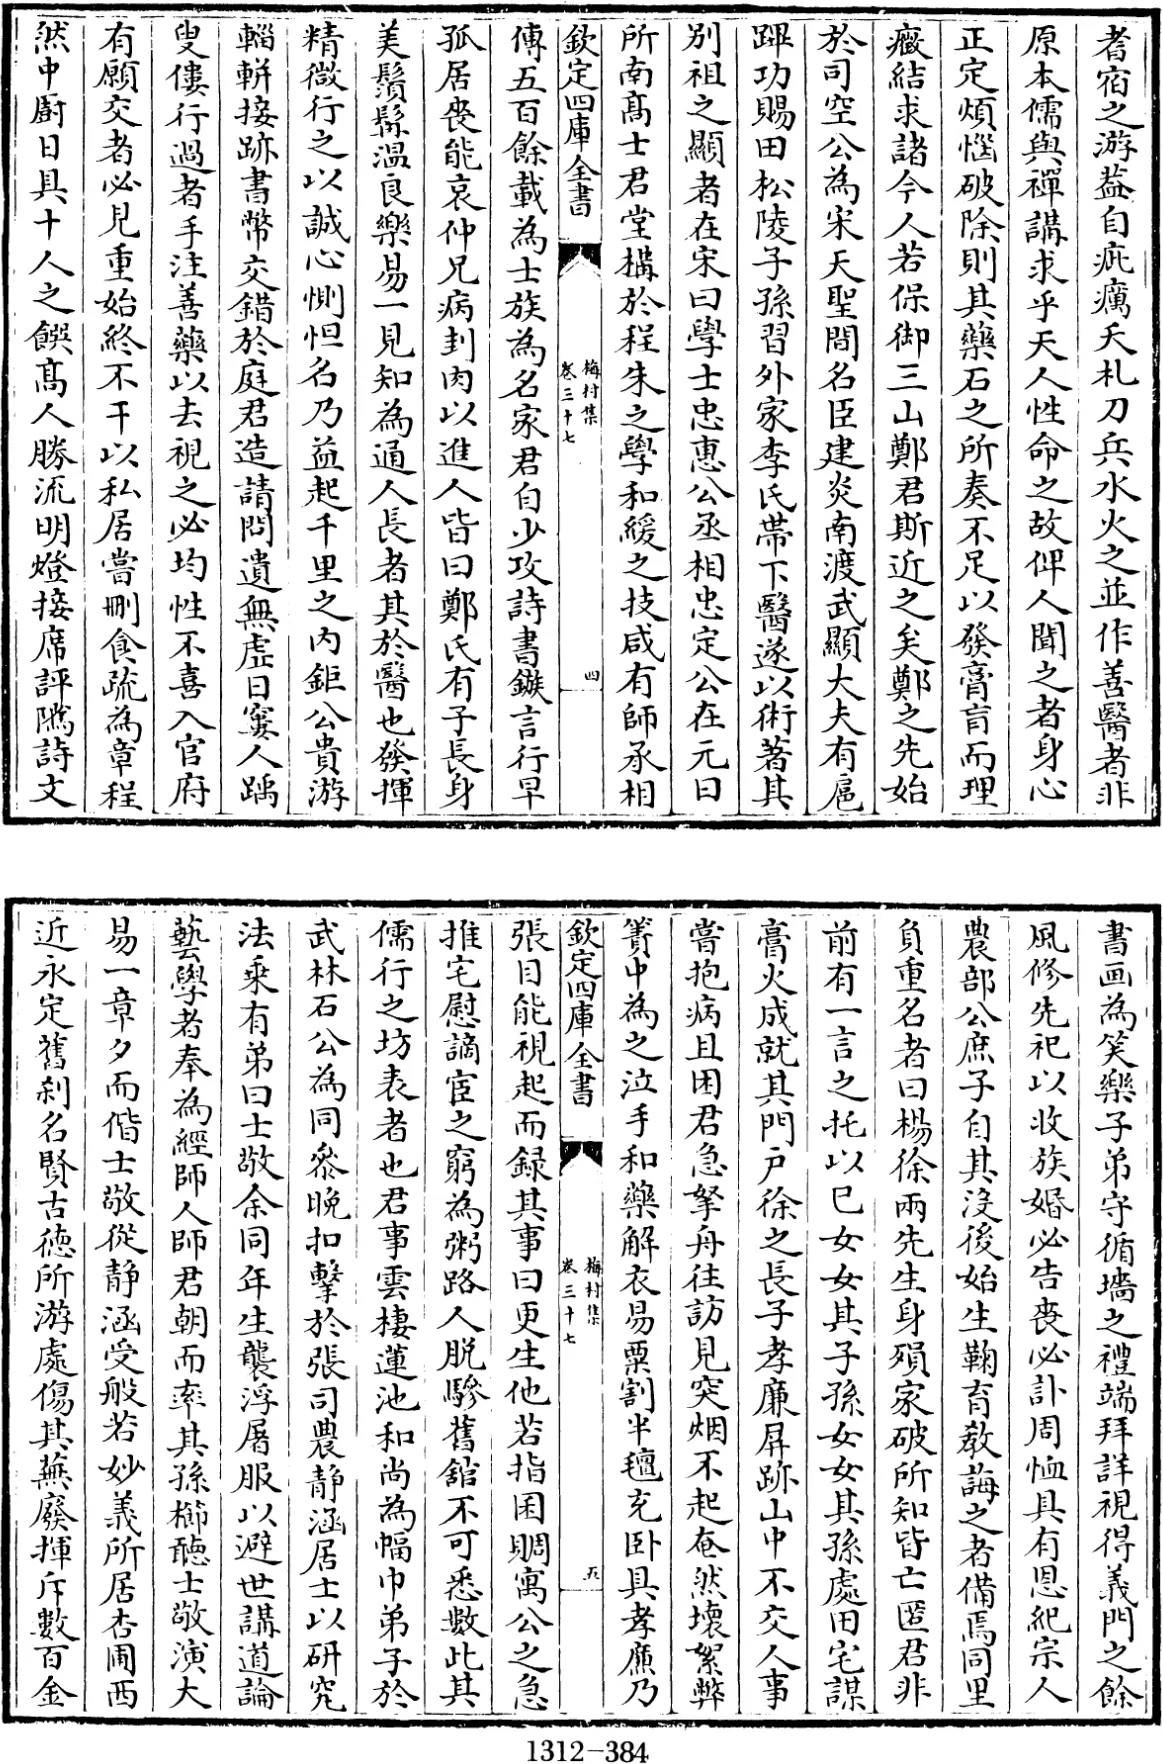 耆宿之游葢自疵癘夭札刀兵水火之並作善醫者非
原本儒與禪講求乎天人性命之故俾人聞之者身心
正定煩惱破除則其藥石之所奏不足以發膏肓而理
癥結求諸今人若保御三山鄭君斯近之矣鄭之先始
於司空公為宋天聖間名臣建炎南渡武顯大夫有扈
蹕功賜田松陵子孫習外家李氏帶下醫遂以術著其
別祖之顯者在宋曰學士忠惠公丞相忠定公在元曰
所南髙士君堂構於程朱之學和緩之技咸有師承相
欽定四庫全書
梅村集
卷三十七
四
傳五百餘載為士族為名家君自少攻詩書鏃言行早
孤居喪能哀仲兄病封肉以進人皆曰鄭氏有子長身
美鬚髯溫良樂易一見知為通人長者其於醫也發揮
精微行之以誠心惻怛名乃益起千里之內鉅公貴游
輜軿接跡書幣交錯於庭君造請問遺無虛日窶人踽
叟僂行過者手注善藥以去視之必均性不喜入官府
有願交者必見重始終不干以私居嘗刪食疏為章程
然中廚日具十人之饌髙人勝流明燈接席評隲詩文
書画為笑樂子弟守循墻之禮端拜詳視得義門之餘
風修先祀以收族婚必告喪必訃周恤具有恩紀宗人
農部公庶子自其沒後始生鞠育教誨之者備焉同里
負重名者曰楊徐兩先生身殞家破所知皆亡匿君非
前有一言之托以已女女其子孫女女其孫處田宅謀
膏火成就其門戶徐之長子孝廉屏跡山中不交人事
嘗抱病且困君急拏舟往訪見突烟不起奄然壞絮弊
簀中為之泣手和藥解衣易粟割半氊充臥具孝廉乃
欽定四庫全書
梅村集
卷三十七
五
張目能視起而録其事曰更生他若指囷賙寓公之急
推宅慰謫宦之窮為粥路人脫驂舊舘不可悉數此其
儒行之坊表者也君事雲棲蓮池和尚為幅巾弟子於
武林石公為同叅晚扣擊於張司農静涵居士以研究
法乘有弟曰士敬余同年生襲浮屠服以避世講道論
藝學者奉為經師人師君朝而率其孫櫛聽士敬演大
易一章夕而偕士敬從静涵受般若妙義所居杏圃西
近永定舊刹名賢古德所游處傷其蕪廢揮斥數百金
1312-384